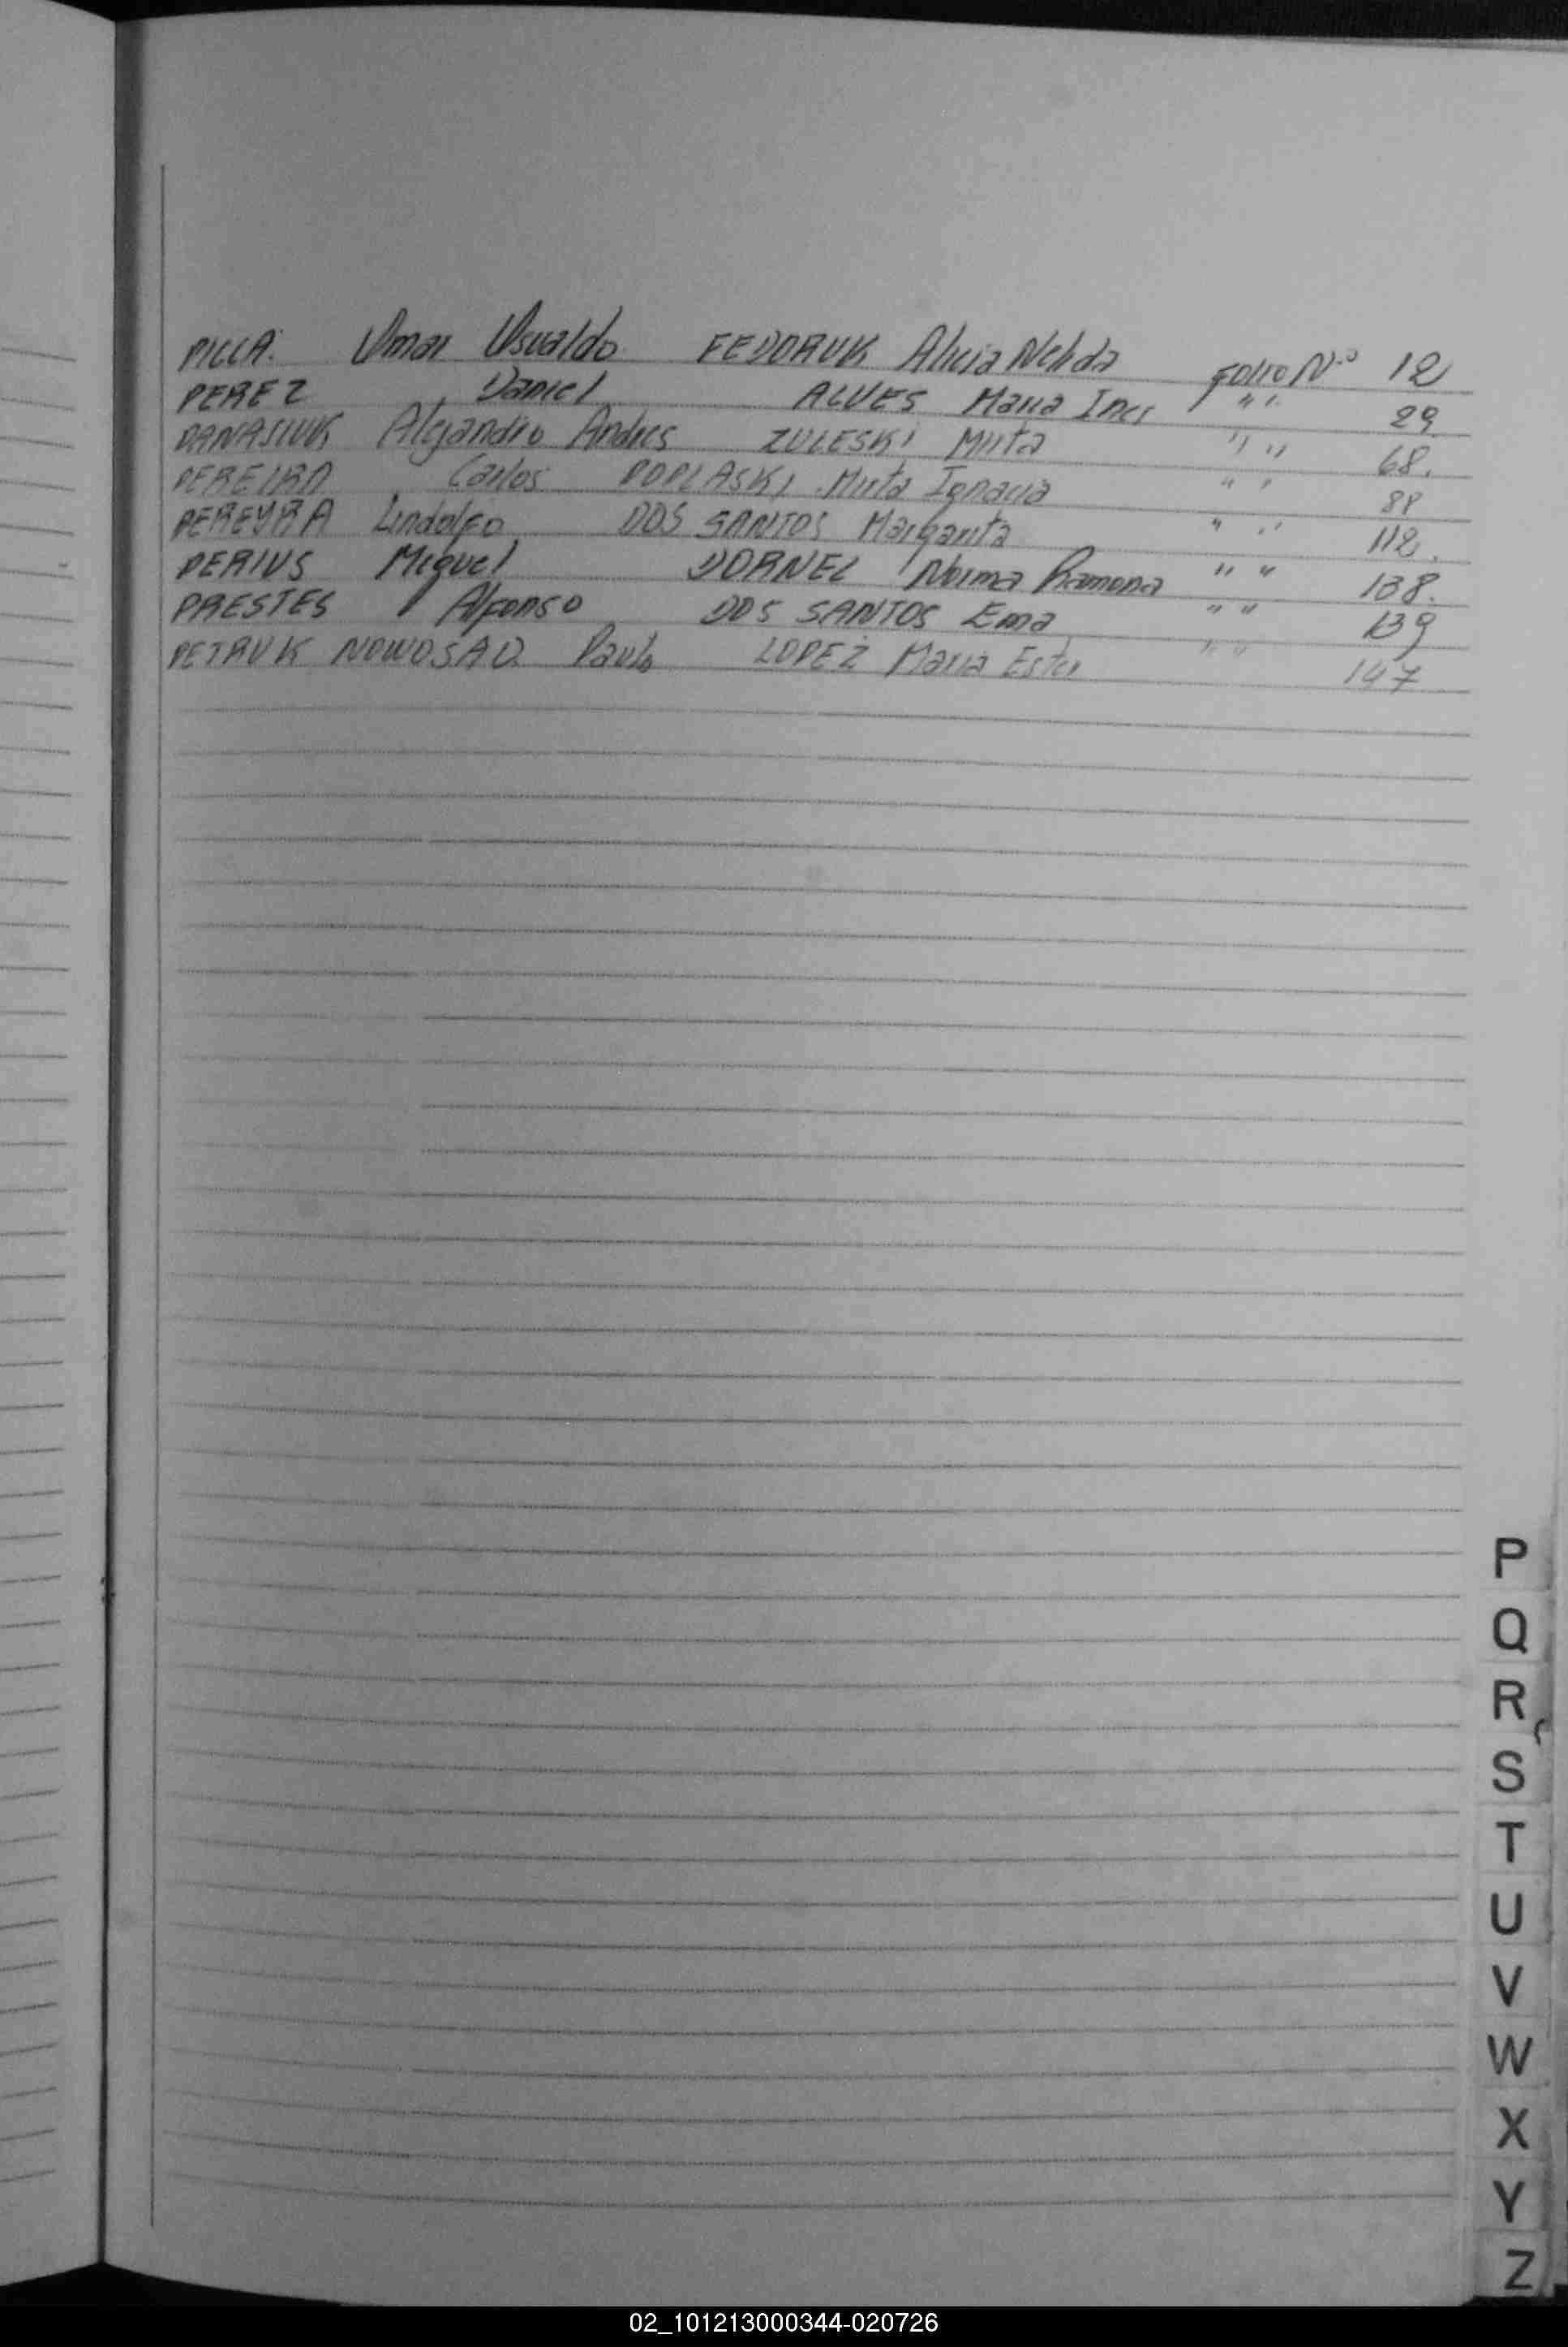 PICCA Omar Osvaldo FEDORUK Alicia Nelida FOLIO Nº 12
PEREZ Daniel ALVES Maria Ines " " 29
PANASIUK Alejandro Andres ZULESKI Mirta " " 68.
PEREIRA Carlos POPLASKI Mirta Ignacia " " 88
PEREYRA Lindolfo DOS SANTOS Margarita " " 112.
PERIUS Miguel DORNEL Norma Ramona " " 138.
PRESTES Alfonso DOS SANTOS Ema " " 139
PETRUK NOWOSAD Paulo LOPEZ Maria Ester " " 147
P
Q
R
S
T
U
V
W
X
Y
Z
02_101213000344-020726